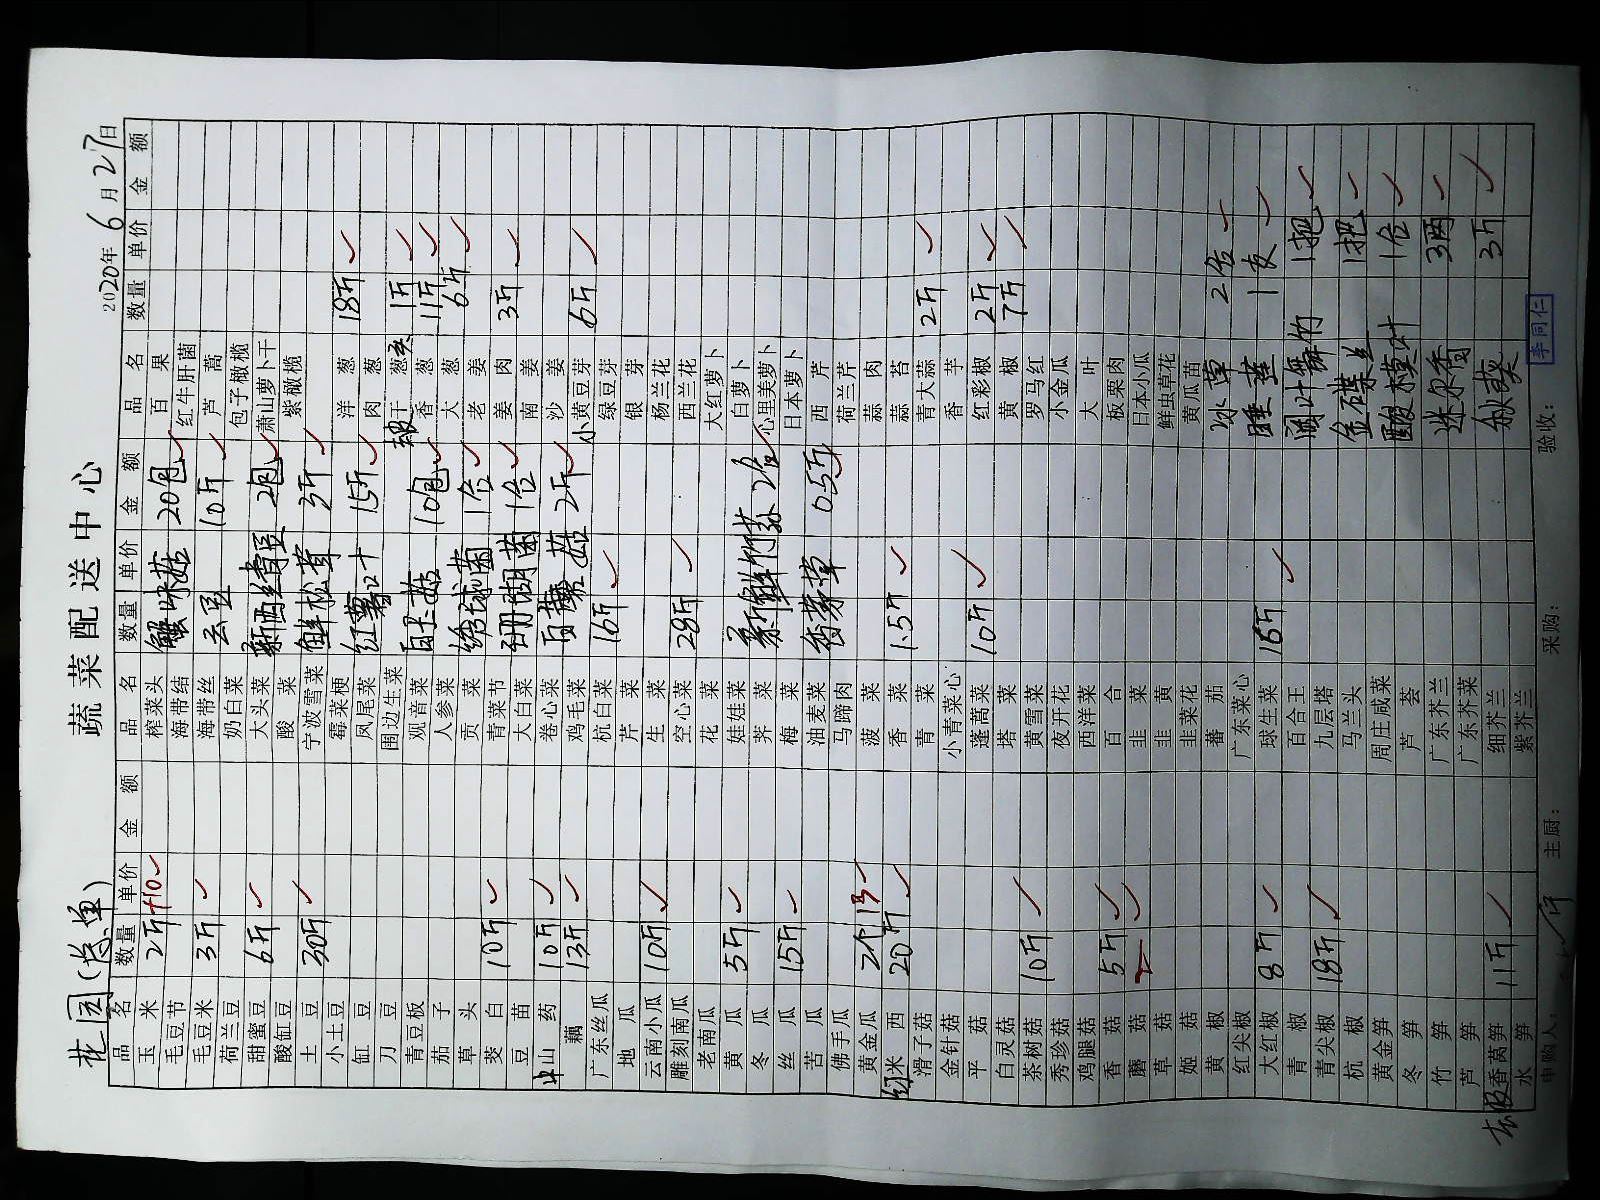 蔬菜配送中心
花园(总单)
2020年6月27日
品名 数量 单价 金额 品名 数量 单价 金额 品名 数量 单价 金额
玉米 2斤 +10 榨菜头 蟹味菇 20包 百果
毛豆节 海带结 红牛肝菌
毛豆米 3斤 海带丝 云豆 10斤 芦蒿
荷兰豆 奶白菜 包子橄榄
甜蜜豆 6斤 大头菜 新西绿豆 2包 萧山萝卜干
酸缸豆 酸菜 紫橄榄
土豆 30斤 宁波雪菜 鲜松茸 3斤
小土豆 霉菜梗 洋葱 18斤
缸豆 凤尾菜 红薯叶 15斤 肉葱
刀豆 围边生菜 干葱头 1斤
青豆板 观音菜 白卡菇 10包 香葱 11斤
茄子 人参菜 大葱 6斤
草头 贡菜 绣球菌 1合 老姜
茭白 10斤 青菜节 姜肉 3斤
豆苗 大白菜 珊瑚菌 1合 南姜
山药 10斤 卷心菜 沙姜
藕 13斤 鸡毛菜 白蘑菇 2斤 小黄豆芽 6斤
广东丝瓜 杭白菜 16斤 绿豆芽
地瓜 芹菜 银芽
云南小瓜 10斤 生菜 杨兰花
雕刻南瓜 空心菜 28斤 西兰花
老南瓜 花菜 大红萝卜
黄瓜 5斤 娃娃菜 新鲜竹荪 2合 白萝卜
冬瓜 荠菜 心里美萝卜
丝瓜 15斤 梅菜 日本萝卜
苦瓜 油麦菜 香茅草 0.5斤 西芹
佛手瓜 马蹄肉 荷兰芹
黄金瓜 2个 13 菠菜 蒜肉
红米西 20斤 香菜 1.5斤 蒜苔
滑子菇 青菜 青大蒜 2斤
金针菇 小青菜心 香芋
平菇 蓬蒿菜 10斤 红彩椒 2斤
白灵菇 塔菜 黄椒 7斤
茶树菇 10斤 黄雪菜 罗马红
秀珍菇 夜开花 小金瓜
鸡腿菇 西洋菜 大叶
香菇 5斤 百合 板栗肉
蘑菇 韭菜 日本小瓜
草菇 韭黄 鲜虫草花
姬菇 韭菜花 黄瓜苗
黄椒 蕃茄 冰草 2合
红尖椒 广东菜心
大红椒 8斤 球生菜 16斤 睡莲 1支
青椒 百合王 阔叶舞竹 1把
青尖椒 18斤 九层塔
杭椒 马兰头 金碟兰 1把
黄金笋 周庄咸菜 酸模叶 1合
冬笋 芦荟
竹笋 广东芥兰 迷尔香 3两
芦笋 广东芥菜
去皮香莴笋 11斤 细芥兰 秋葵 3斤
水笋 紫芥兰
申购人: 主厨: 采购: 验收: 李同仁